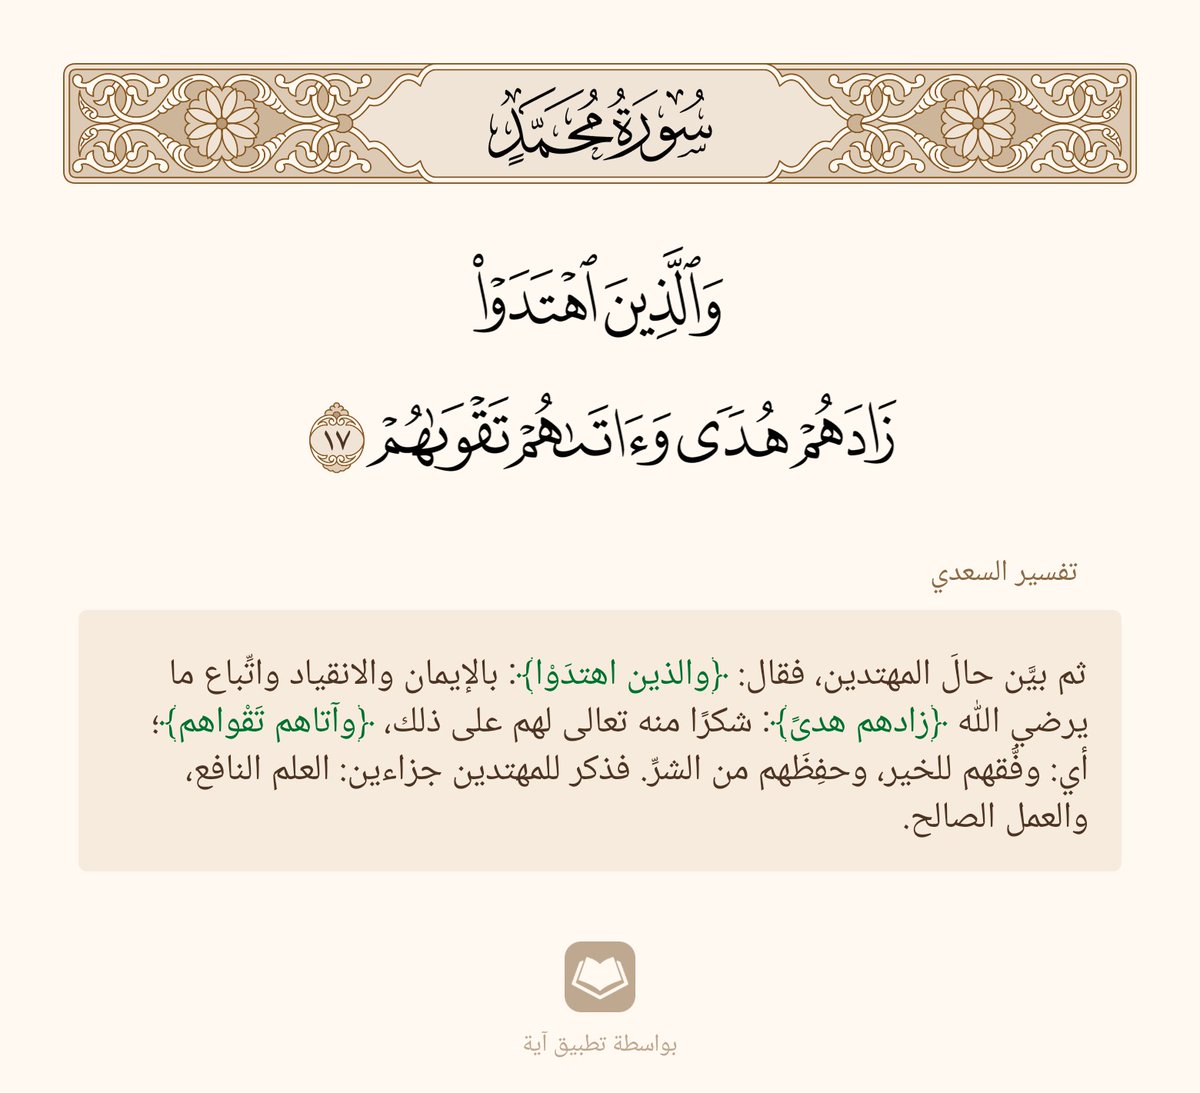 سُورَةُ مُحَمَّدٍ
وَٱلَّذِينَ ٱهۡتَدَوۡاْ
زَادَهُمۡ هُدٗى وَءَاتَىٰهُمۡ تَقۡوَىٰهُمۡ ١٧
تفسير السعدي
ثم بيَّن حالَ المهتدين، فقال: ﴿والذين اهتدَوْا﴾: بالإيمان والانقياد واتِّباع ما
يرضي الله ﴿زادهم هدىً﴾: شكرًا منه تعالى لهم على ذلك، ﴿وآتاهم تَقْواهم﴾؛
أي: وفَّقهم للخير، وحفِظَهم من الشرِّ. فذكر للمهتدين جزاءين: العلم النافع،
والعمل الصالح.
بواسطة تطبيق آية